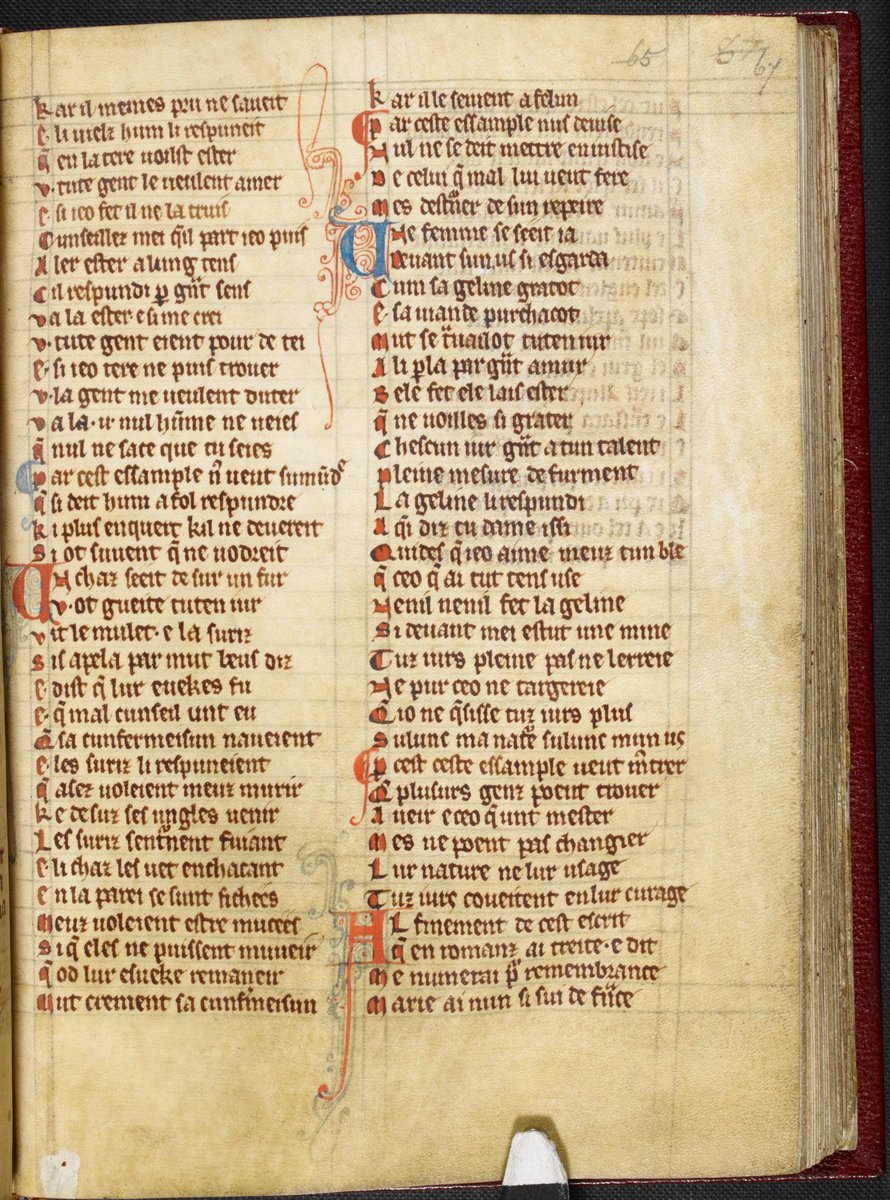 65 57 67
kar il memes pru ne saueit
e li uielz hum li respuneit
q̄ en la tere uoilst ester
v tute gent le ueulent amer
e si ieo fet il ne la truis
Cunseillez mei q̄l part ieo puis
Aler ester a lung tens
Cil respundi ꝑ gñt sens
va la ester e si me crei
v tute gent eient pour de tei
e si ieo tere ne puis trouer
v la gent me ueulent duter
va la u nul hūme ne ueies
q̄ nul ne sace que tu seies
par cest essample n̄ ueut sumūdͬ
q̄ si deit hum a fol respundre
ki plus enquert kil ne deuereit
Si ot suuent q̄ ne uodreit
Un chaz seeit de sur un fur
v ot gueite tuten iur
vit le mulet e la suriz
Sis apela par mut beus diz
e dist q̄ lur eueskes fu
e q̄ mal cunseil unt eu
Q̄ sa cunfermeisun naueient
e les suriz li respuneient
q̄ asez uoleient meuz murir
ke desuz ses ungles uenir
Les suriz senturnent fuiant
e li chaz les uet enchacant
en la parei se sunt fichees
Meuz uoleient estre mucees
Si q̄ eles ne puissent muueir
q̄ od lur esueke remaneir
Mut crement sa cunfirmeisun
kar ille seiuent a felun
par ceste essample nus deuise
Nul ne se deit mettre en iustise
De celui q̄ mal lui ueut fere
Mes destūer de sun repeire
Une femme se seeit ia
Deuant sun us si esgarda
Cum sa geline gratot
e sa uiande purchacot
Mut se trauailot tuten iur
A li ꝑla par gñt amur
Bele fet ele lais ester
q̄ ne uoilles si grater
Chescun iur gñt a tun talent
pleine mesure de furment
La geline li respundi
A qi diz tu dame issi
Quides q̄ ieo aime meuz tun ble
q̄ ceo q̄ ai tut tens use
Nenil nenil fet la geline
Si deuant mei estut une mine
Tuz iurs pleine pas ne lerreie
Ne pur ceo ne targereie
Q̄ io ne q̄sisse tuz iurs plus
Sulunc ma natͬe sulunc mun us
ꝑ cest ceste essample ueut mͬtrer
Q̄ plusurs genz poent trouer
Aueir e ceo q̄ unt mester
Mes ne poent pas changier
Lur nature ne lur usage
Tuz iurs coueitent en lur curage
Al finement de cest escrit
q̄ en romanz ai treite e dit
Me numerai pͬ remembrance
Marie ai nun si sui de fͬnce